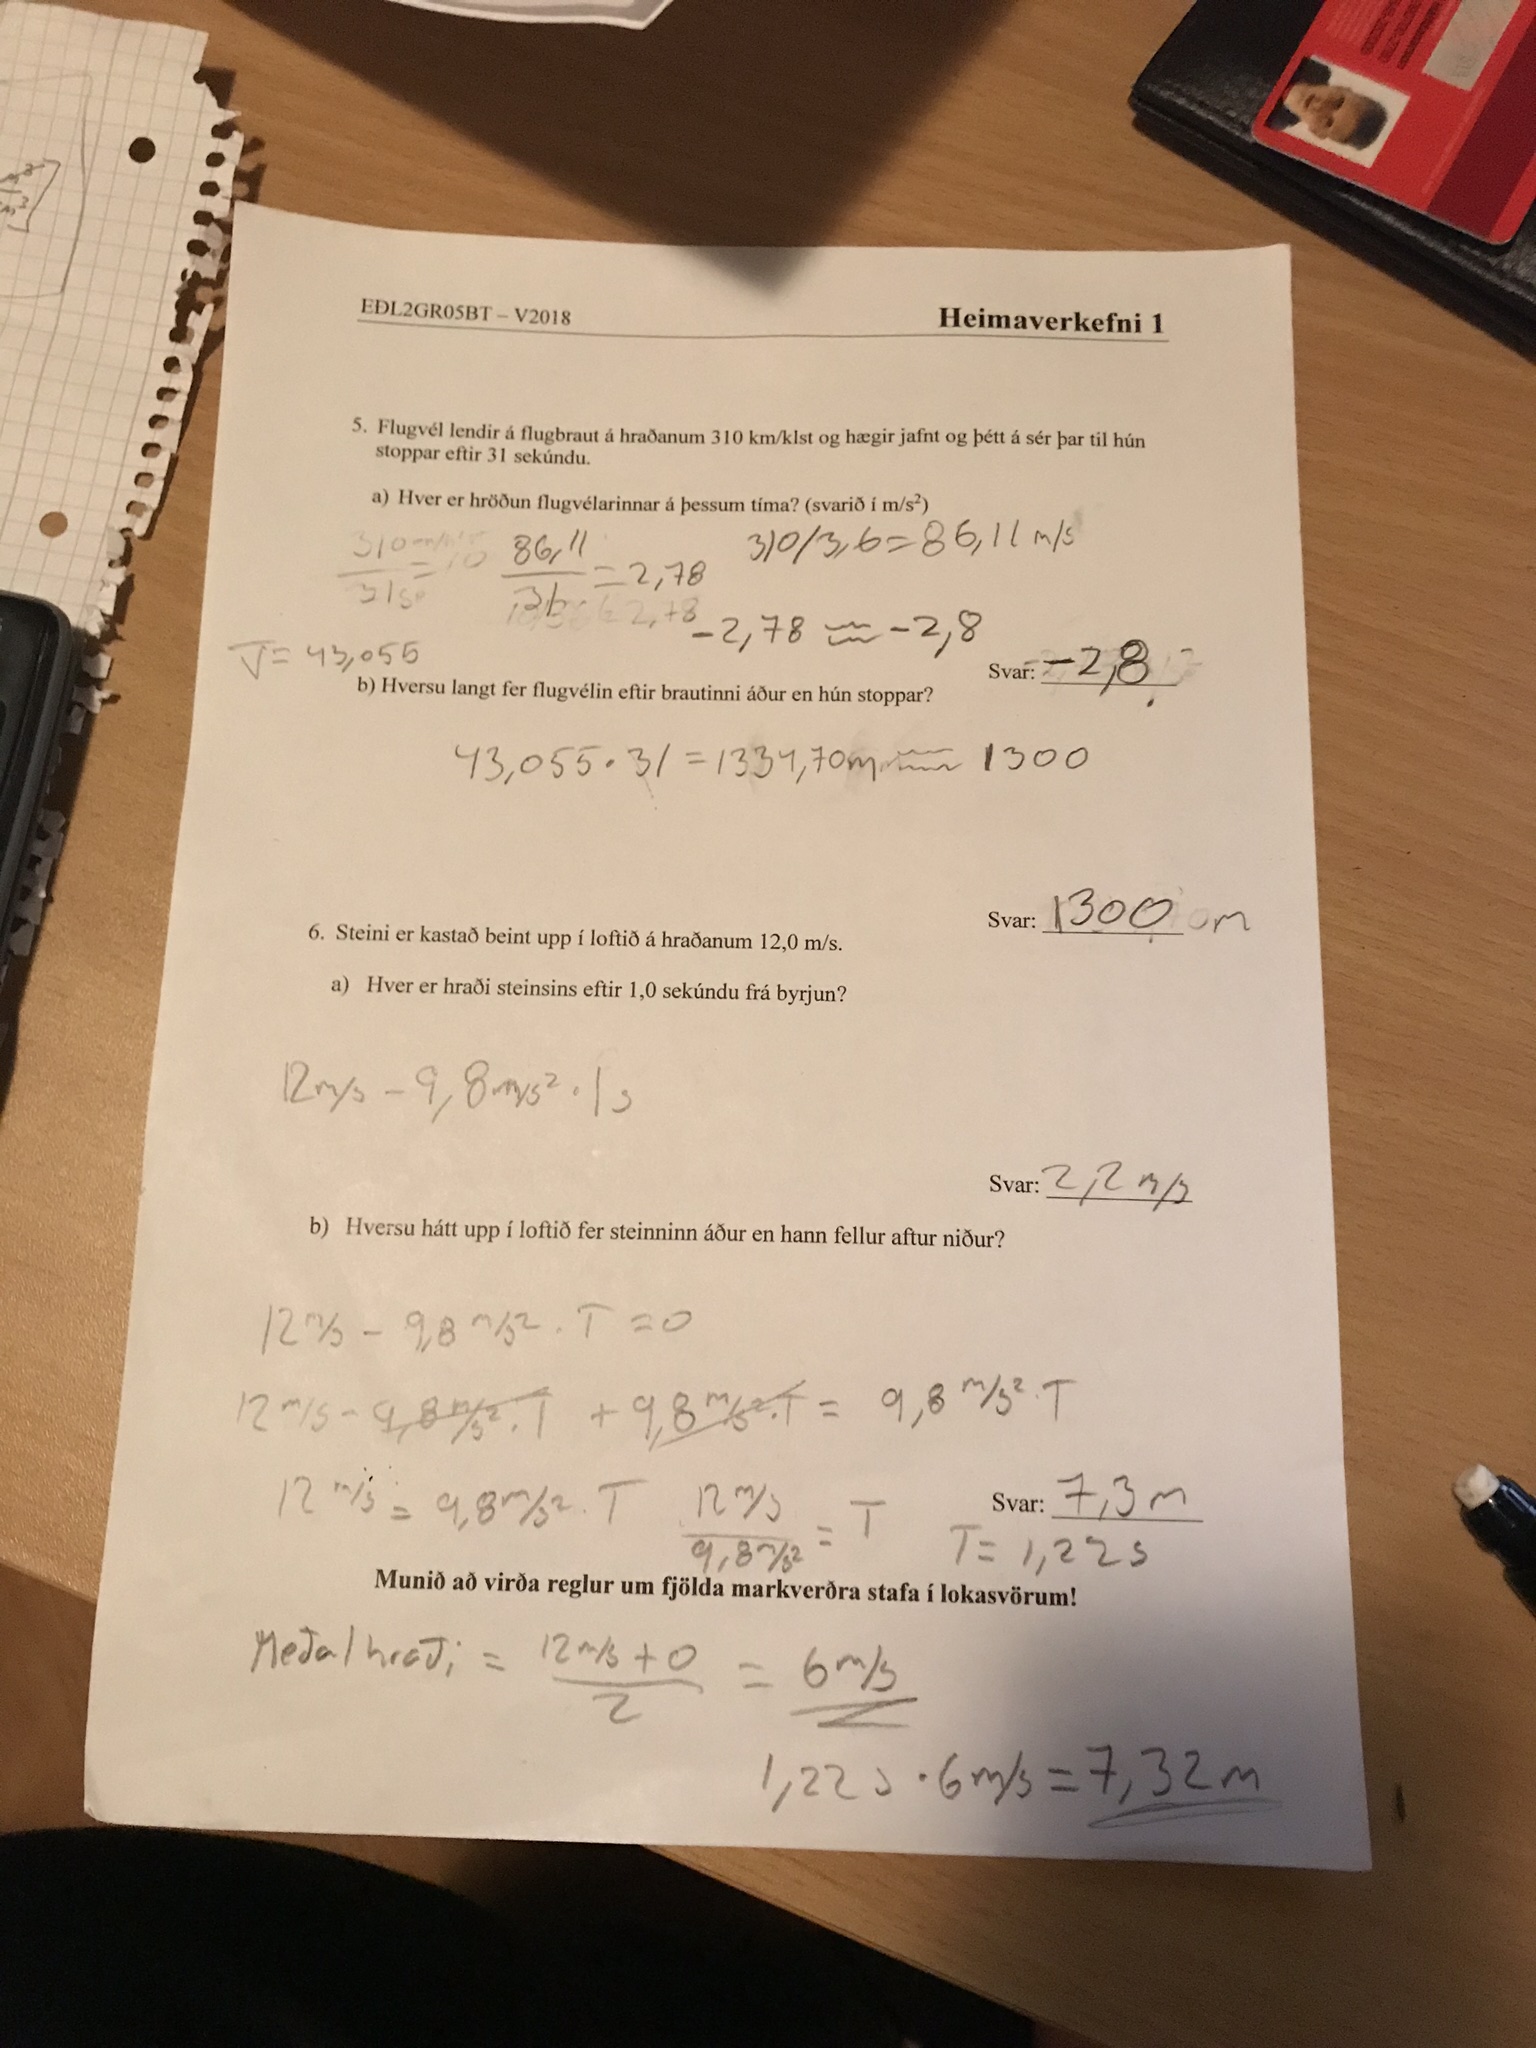 EÐL2GR05BT – V2018
Heimaverkefni 1
5. Flugvél lendir á flugbraut á hraðanum 310 km/klst og hægir jafnt og þétt á sér þar til hún
stoppar eftir 31 sekúndu.
a) Hver er hröðun flugvélarinnar á þessum tíma? (svarið í m/s²)
310/3,6=86,11 m/s
86,11
= 2,78
-2,78 ≈ -2,8
Svar: -2,8
= 43,055
b) Hversu langt fer flugvélin eftir brautinni áður en hún stoppar?
43,055 · 31 = 1334,70m ≈ 1300
Svar: 1300 m
6. Steini er kastað beint upp í loftið á hraðanum 12,0 m/s.
a) Hver er hraði steinsins eftir 1,0 sekúndu frá byrjun?
12m/s - 9,8m/s² · 1s
Svar: 2,2 m/s
b) Hversu hátt upp í loftið fer steinninn áður en hann fellur aftur niður?
12m/s - 9,8 m/s² · T = 0
12m/s - 9,8m/s² · T + 9,8m/s² · T = 9,8 m/s² · T
12 m/s = 9,8m/s² · T
12m/s
9,8m/s²
= T
Svar: 7,3m
T = 1,22s
Munið að virða reglur um fjölda markverðra stafa í lokasvörum!
Meðalhraði = 12m/s + 0
2
= 6m/s
1,22s · 6m/s = 7,32m